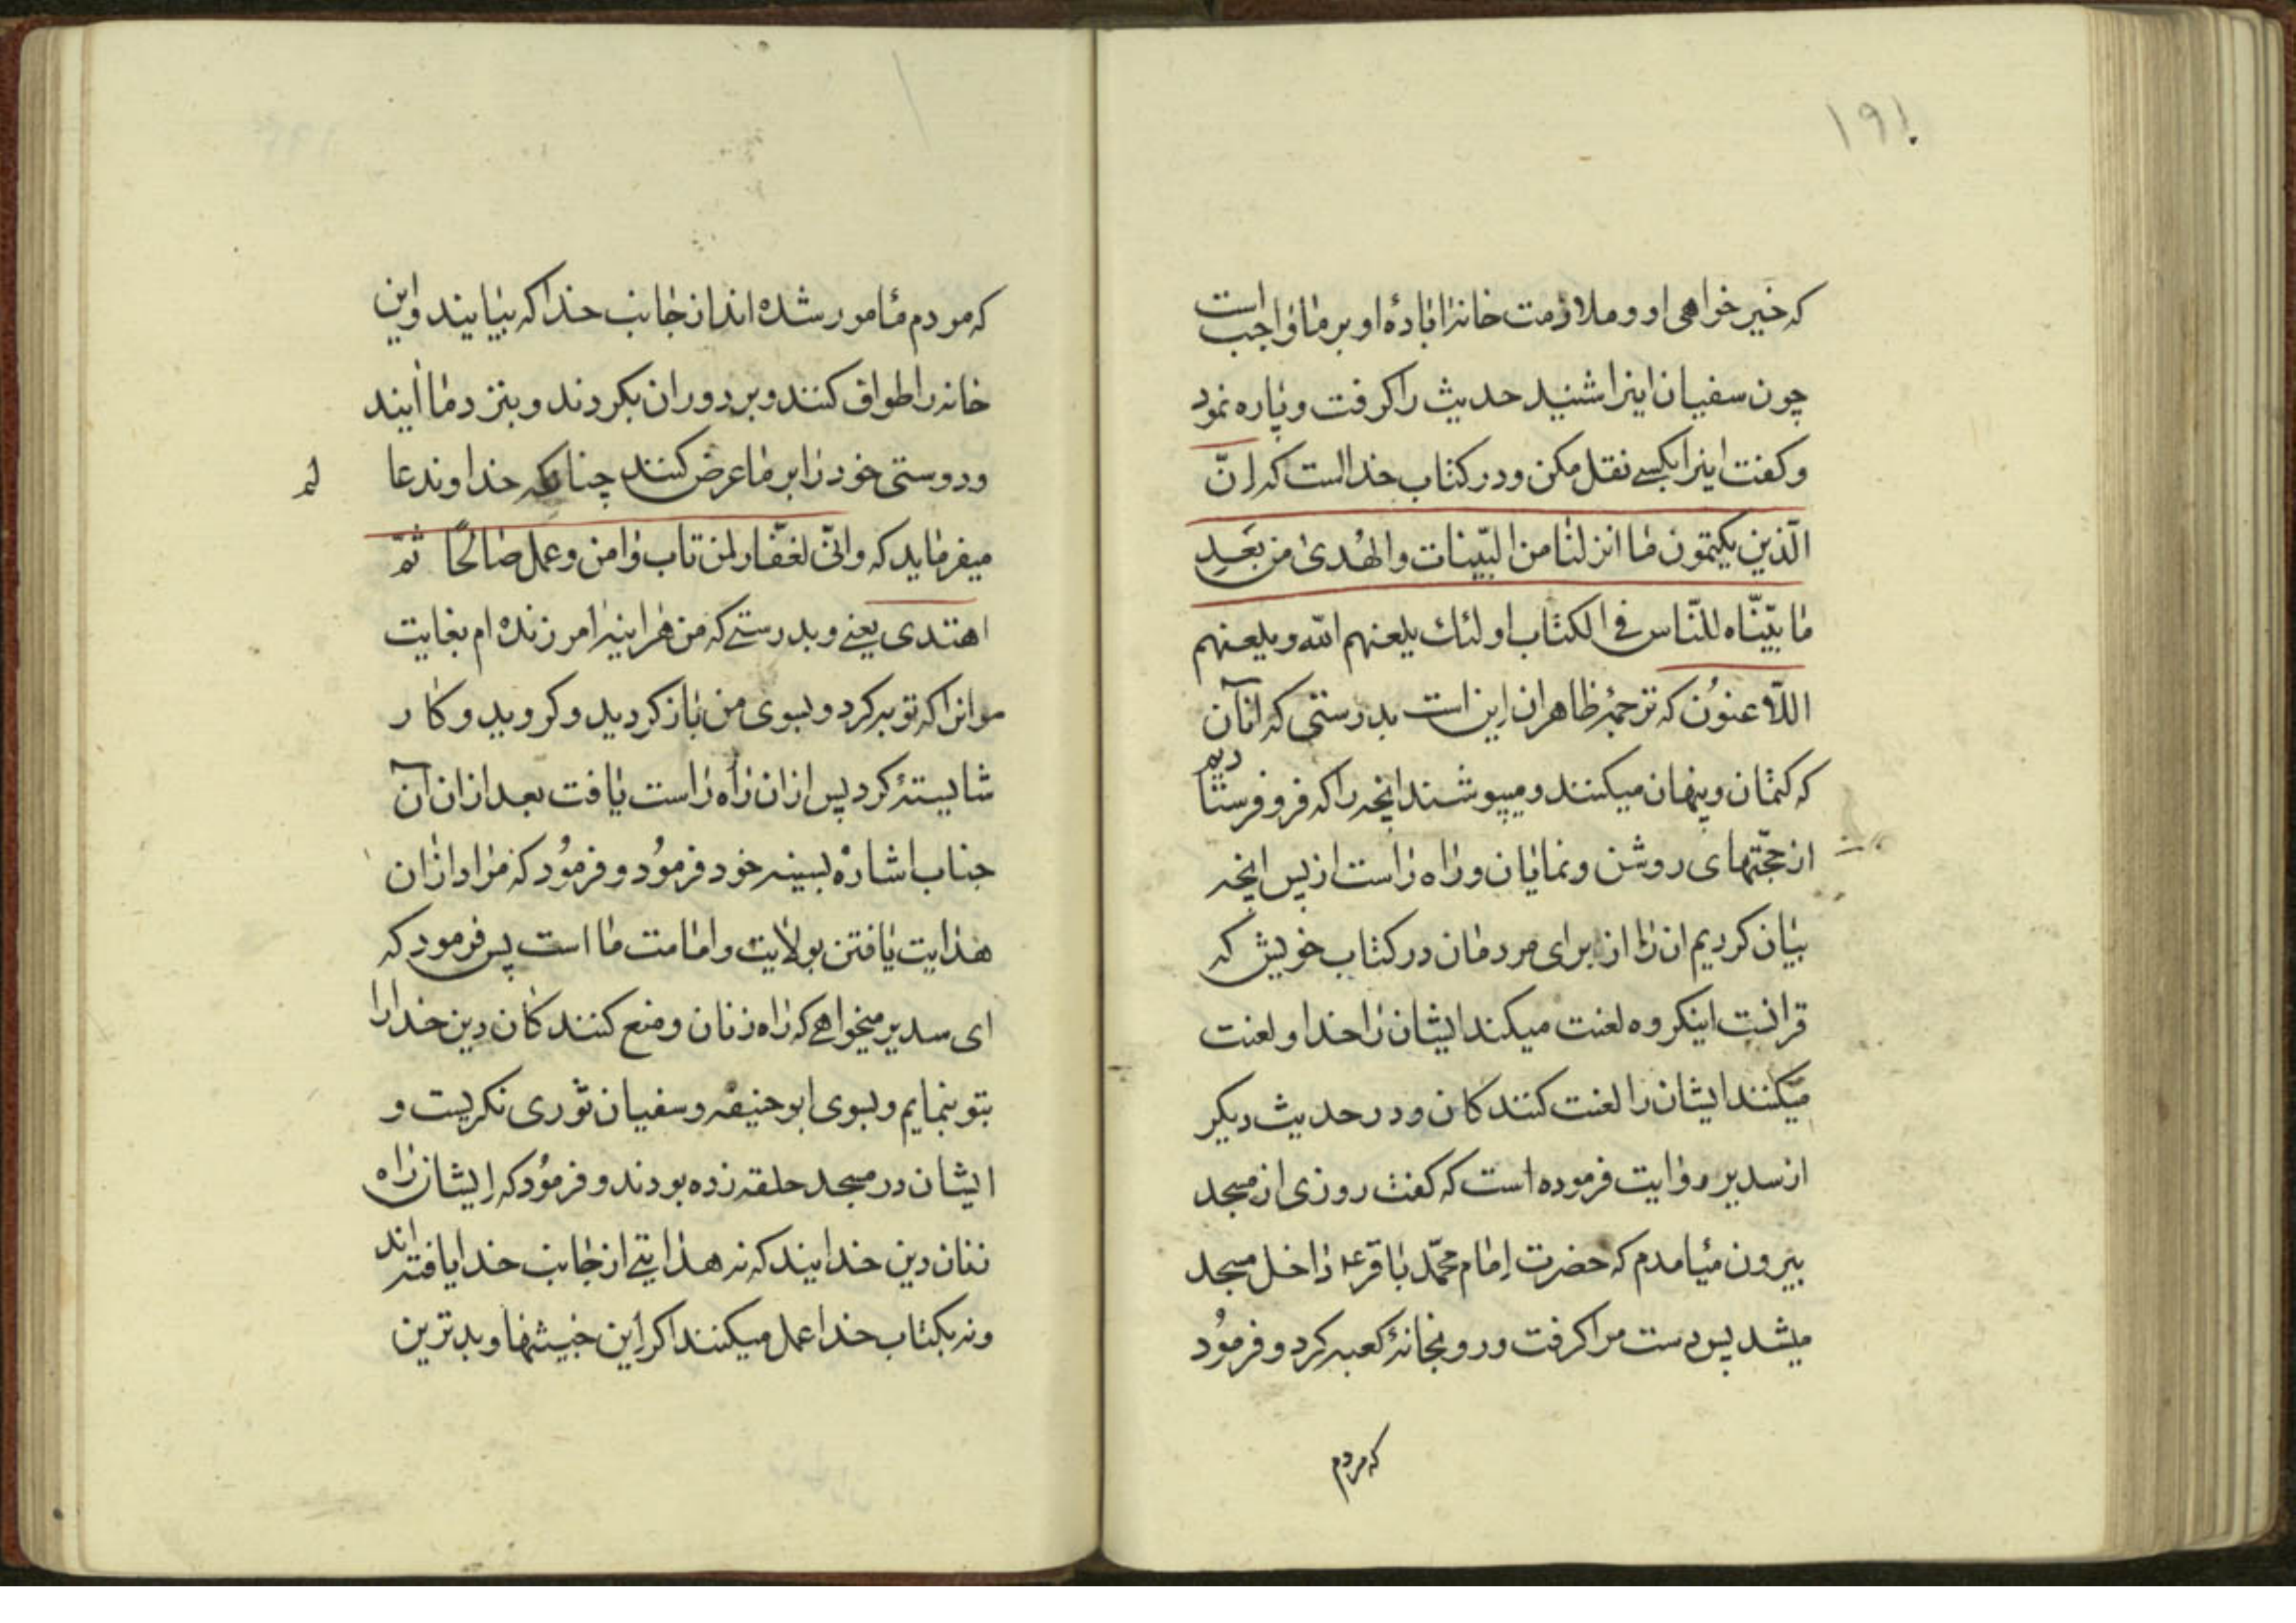 ۱۹۱
که خیر خواهی او و ملازمت خانه اباده او بر ما واجب است
چون سفیان اینرا شنید حدیث را کرفت و پاره نمود
و کفت اینرا بکسی نقل مکن و در کتاب خدا است که انّ
الّذین یکتمون ما انزلنا من البیّنات والهُدی من بَعدِ
ما بیّنّاه للنّاس فی الکتاب اولئک یلعنهم الله ویلعنهم
اللّاعنوُن که ترجمهٔ ظاهر ان این است بدرستی که انان
که کتمان و پنهان میکنند و میپوشند انچه را که فرو فرستادیم
از حجّتهای روشن و نمایان و راه راست از پس انچه
بیان کردیم ان را از برای مردمان در کتاب خویش که
قرانست اینکروه لعنت میکند ایشان را خدا و لعنت
میکنند ایشان را لعنت کنندکان و در حدیث دیکر
از سدیر روایت فرموده است که کفت روزی از مسجد
بیرون میامدم که حضرت امام محمّد باقر ع داخل مسجد
میشد پس دست مرا کرفت و رو بخانهٔ کعبه کرد و فرموُد
که مردم
که مردم مأمور شده اند از جانب خدا که بیایند و این
خانه را طواف کنند و بر دور ان بکردند و بنزد ما ایند
و دوستی خود را بر ما عرض کنند چنانکه خداوند عا
لم
میفرماید که وانّی لغفّار لمن تاب وامن وعمل صالحًا ثمّ
اهتدی یعنے و بدرستے که من هراینه امرزنده ام بغایت
مرانرا که توبه کرد و بسوی من باز کردید و کروید و کار
شایستهٔ کرد پس از ان راه راست یافت بعد از ان آن
جناب اشاره بسینه خود فرموُد و فرموُد که مراد از ان
هدایت یافتن بولایت و امامت ما است پس فرمود که
ای سدیر میخواهے که راه زنان و منع کنندکان دین خدا را
بتو بنمایم و بسوی ابو حنیفه و سفیان ثوری نکریست و
ایشان در مسجد حلقه زده بودند و فرموُد که ایشان راه
زنان دین خدایند که نه هدایتے از جانب خدا یافته اند
و نه بکتاب خدا عمل میکنند اکر این خبیثها و بدترین